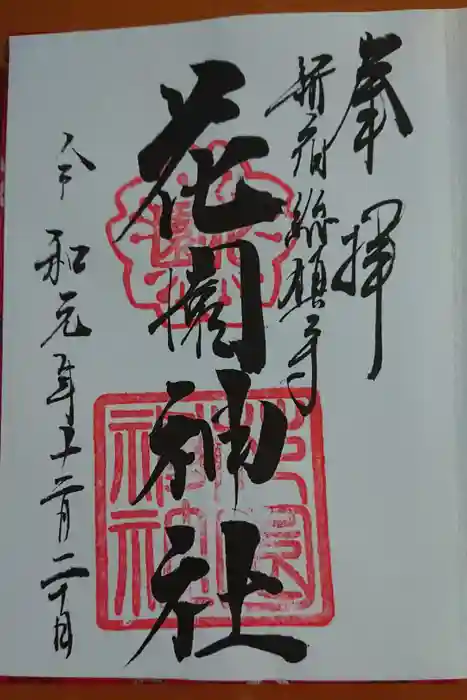 奉拝
新宿総鎮守
花園神社
令和元年十二月二十日
花園神社